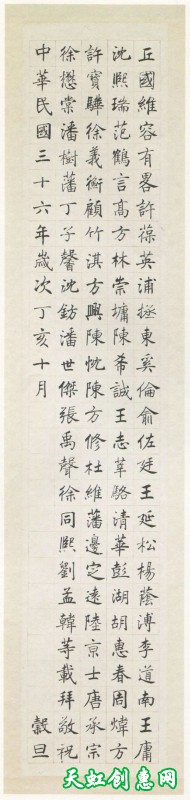 丘國維容有畧許葆英浦拯東奚倫俞佐廷王延松楊蔭溥李道南王庸
沈熙瑞范鶴言高方林崇墉陳希誠王志莘駱清華彭湖胡惠春周煒方
許寶驊徐義衡顧竹淇方興陳忱陳方修杜維藩邊定遠陸京士唐承宗
徐懋棠潘樹藩丁子馨沈鈁潘世傑張禹聲徐同熙劉孟韓等載拜敬祝
中華民國三十六年歲次丁亥十月 穀旦
天虹创惠网